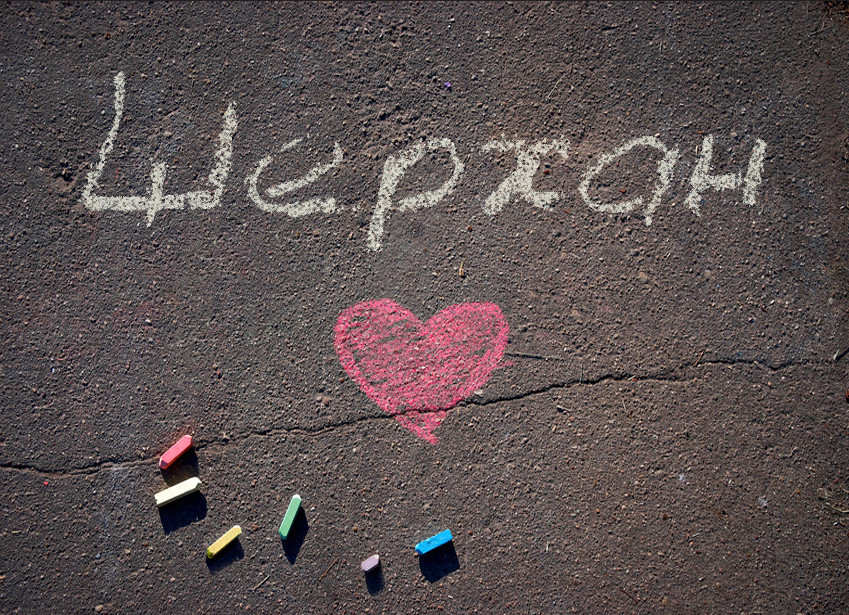 Шерхан